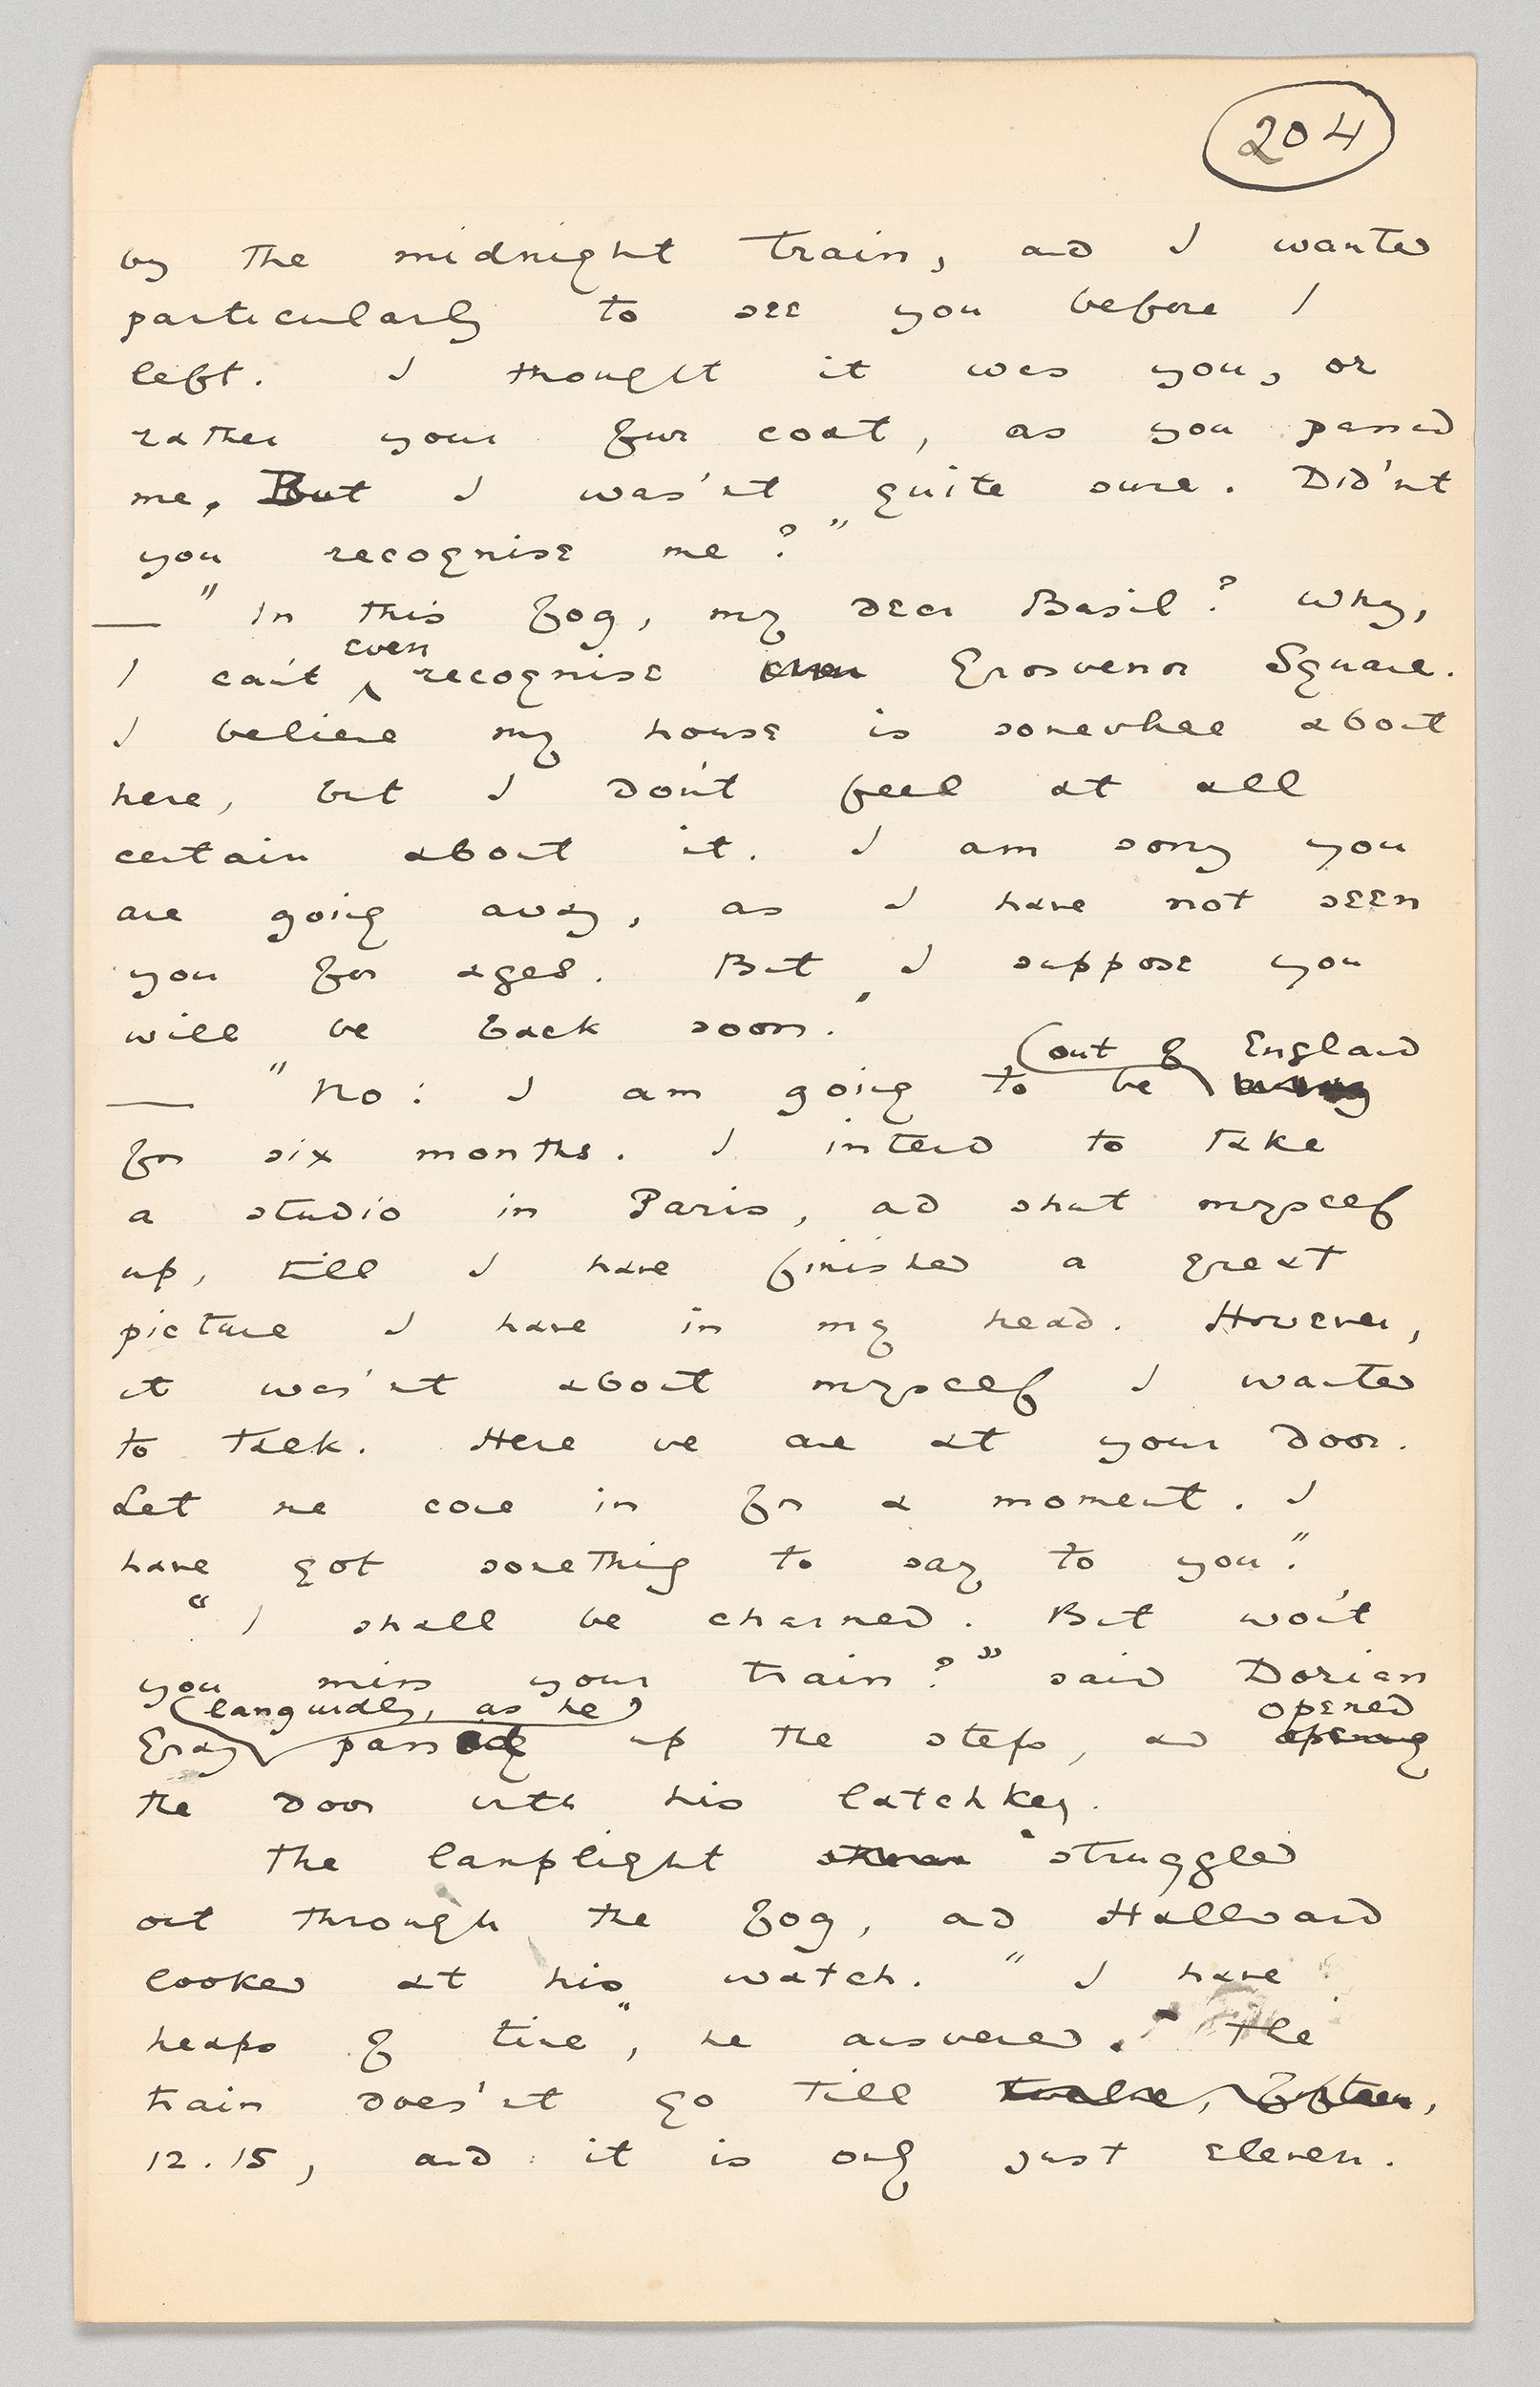 204
by the midnight train, and I wanted
particularly to see you before I
left. I thought it was you, or
rather your fur coat, as you passed
me. But I was'nt quite sure. Did'nt
you recognise me?"
— "In this fog, my dear Basil? Why,
even
I can't recognise even Grosvenor Square.
I believe my house is somewhere about
here, but I don't feel at all
certain about it. I am sorry you
are going away, as I have not seen
you for ages. But I suppose you
will be back soon."
out of England
— "No: I am going to be away
for six months. I intend to take
a studio in Paris, and shut myself
up, till I have finished a great
picture I have in my head. However,
it was'nt about myself I wanted
to talk. Here we are at your door.
Let me come in for a moment. I
have got something to say to you."
"I shall be charmed. But won't
you miss your train?" said Dorian
languidly, as he opened
Gray passed up the steps, and opening
the door with his latchkey.
The lamplight struggled
out through the fog, and Hallward
looked at his watch. "I have
heaps of time", he answered. "The
train does'nt go till twelve, fifteen,
12.15, and it is only just eleven.